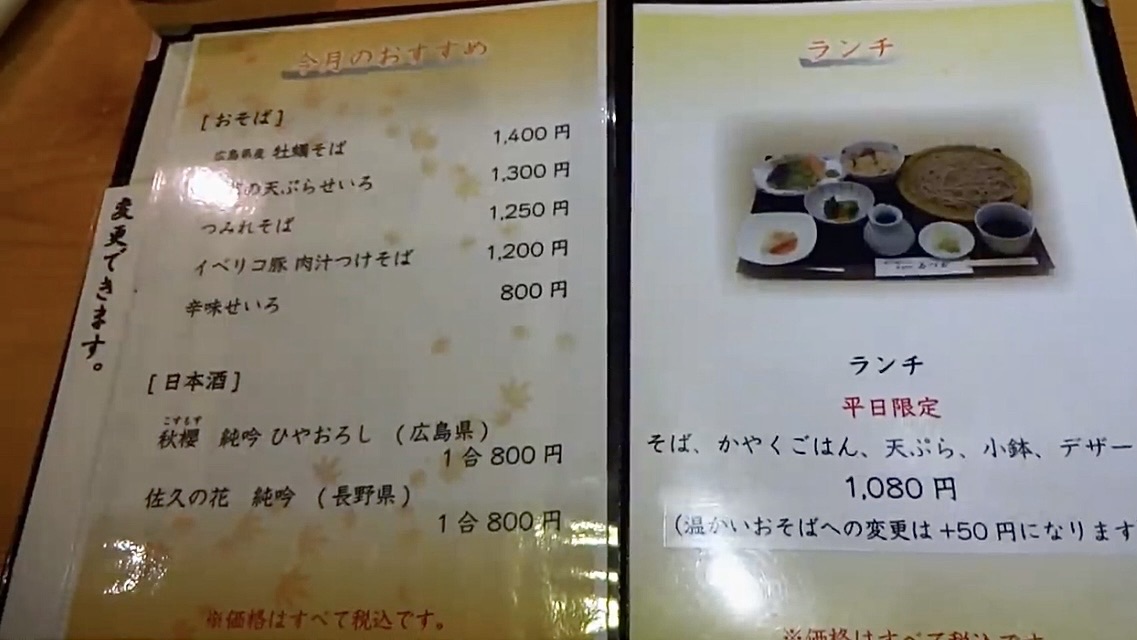 変更できます。
今月のおすすめ
[おそば]
広島県産 牡蠣そば 1,400 円
の天ぷらせいろ 1,300 円
つみれそば 1,250 円
イベリコ豚 肉汁つけそば 1,200 円
辛味せいろ 800 円
[日本酒]
こすもす
秋櫻 純吟 ひやおろし (広島県)
1 合 800 円
佐久の花 純吟 (長野県)
1 合 800 円
※価格はすべて税込です。
ランチ
ランチ
平日限定
そば、かやくごはん、天ぷら、小鉢、デザー
1,080 円
(温かいおそばへの変更は +50 円になります
※価格はすべて税込です